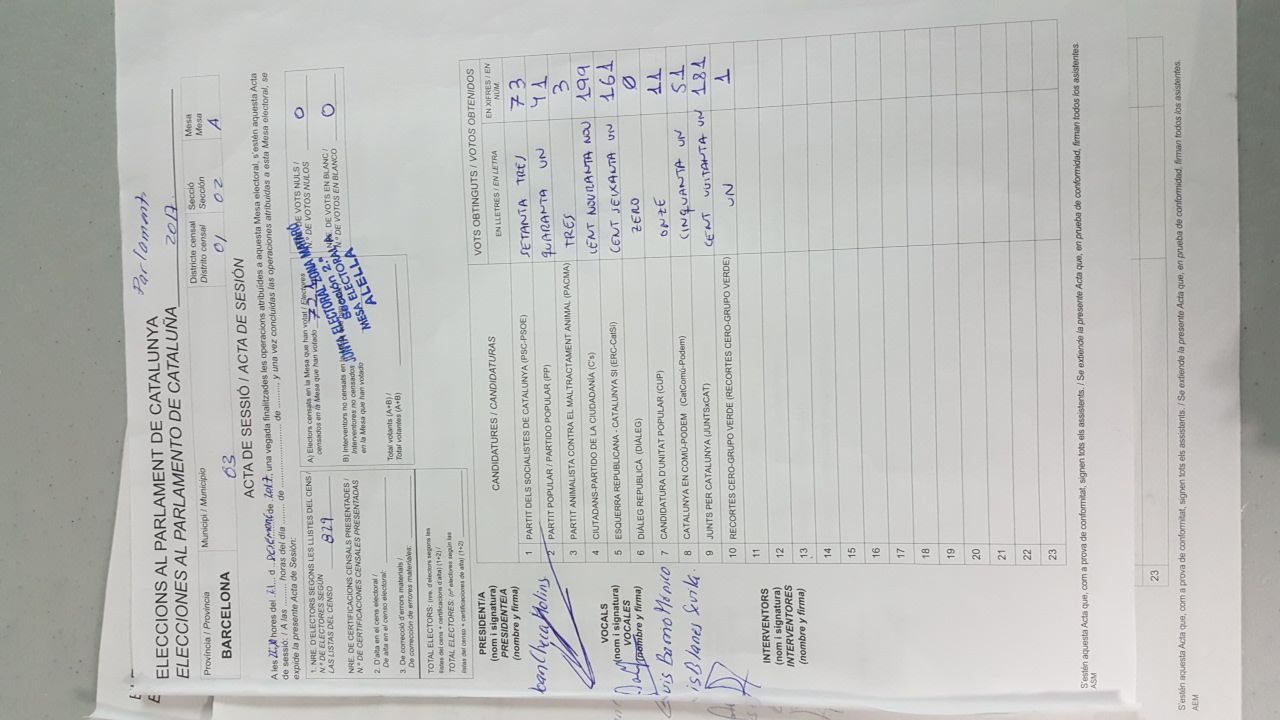 Parlament
ELECCIONS AL PARLAMENT DE CATALUNYA
ELECCIONES AL PARLAMENTO DE CATALUÑA 2017
Província / Provincia
BARCELONA
Municipi / Municipio
03
Districte censal
Distrito censal
01
Secció
Sección
02
Mesa
Mesa
A
ACTA DE SESSIÓ / ACTA DE SESIÓN
A les hores del d de 2017, una vegada finalitzades les operacions atribuïdes a aquesta Mesa electoral, s'estén aquesta Acta
de sessió: / A las .......... horas del día .......... de .......... de .......... y una vez concluidas las operaciones atribuidas a esta Mesa electoral, se
expide la presente Acta de Sesión:
1. NRE. D'ELECTORS SEGONS LES LLISTES DEL CENS /
N.º DE ELECTORES SEGÚN
LAS LISTAS DEL CENSO 829
NRE. DE CERTIFICACIONS CENSALS PRESENTADES /
N.º DE CERTIFICACIONES CENSALES PRESENTADAS
2. D'alta en el cens electoral /
De alta en el censo electoral:
3. De correcció d'errors materials /
De corrección de errores materiales:
TOTAL ELECTORS: (nre. d'electors segons les
llistes del cens + certificacions d'alta) (1+2) /
TOTAL ELECTORES: (nº electores según las
listas del censo + certificaciones de alta) (1+2)
A) Electors censats en la Mesa que han votat / Electores
censados en la Mesa que han votado
B) Interventors no censats en la
Interventores no censados
en la Mesa que han votado
Total votants (A+B) /
Total votantes (A+B)
NRE. DE VOTS NULS /
N.º DE VOTOS NULOS 0
NRE. DE VOTS EN BLANC /
N.º DE VOTOS EN BLANCO 0
JUNTA ELECTORAL ZONA MATARÓ
MESA ELECTORAL
ALELLA
CANDIDATURES / CANDIDATURAS
VOTS OBTINGUTS / VOTOS OBTENIDOS
EN LLETRES / EN LETRA
EN XIFRES / EN NÚM.
1 PARTIT DELS SOCIALISTES DE CATALUNYA (PSC-PSOE) SETANTA TRES 73
2 PARTIT POPULAR / PARTIDO POPULAR (PP) QUARANTA UN 41
3 PARTIT ANIMALISTA CONTRA EL MALTRACTAMENT ANIMAL (PACMA) TRES 3
4 CIUTADANS-PARTIDO DE LA CIUDADANÍA (C's) CENT NOURANTA NOU 199
5 ESQUERRA REPUBLICANA - CATALUNYA SI (ERC-CatSi) CENT SEIXANTA UN 161
6 DIÀLEG REPUBLICÀ (DIÀLEG) ZERO 0
7 CANDIDATURA D'UNITAT POPULAR (CUP) ONZE 11
8 CATALUNYA EN COMÚ-PODEM (CatComú-Podem) CINQUANTA UN 51
9 JUNTS PER CATALUNYA (JUNTSxCAT) CENT VUITANTA UN 181
10 RECORTES CERO-GRUPO VERDE (RECORTES CERO-GRUPO VERDE) UN 1
11
12
13
14
15
16
17
18
19
20
21
22
23
PRESIDENT/A
(nom i signatura)
PRESIDENTE/A
(nombre y firma)
VOCALS
(nom i signatura)
VOCALES
(nombre y firma)
INTERVENTORS
(nom i signatura)
INTERVENTORES
(nombre y firma)
S'estén aquesta Acta que, com a prova de conformitat, signen tots els assistents. / Se extiende la presente Acta que, en prueba de conformidad, firman todos los asistentes.
ASM
23
S'estén aquesta Acta que, com a prova de conformitat, signen tots els assistents. / Se extiende la presente Acta que, en prueba de conformidad, firman todos los asistentes.
AEM